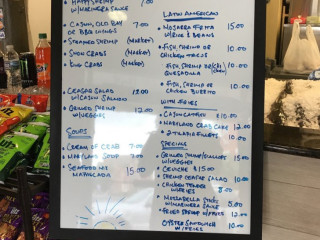 HAPPY SHRIMP 7.00
W/MARINARA SAUCE
• CAJUN, OLD BAY 7.00
OR BBQ WINGS
• STEAMED SHRIMP (MARKET)
• SNOW CRABS (MARKET)
(MARKET)
• CAESAR SALAD 12.00
W/CAJUN SALMON
• GRILLED SHRIMP 12.00
W/VEGGIES
SOUPS
• CREAM OF CRAB 7.00
• MARYLAND SOUP 7.00
• SEAFOOD MIX 15.00
MARISCADA
LATIN AMERICAN
• MOJARRA FRITA 15.00
W/RICE & BEANS
• FISH, SHRIMP OR 10.00
CHICKEN TACOS
• FISH, SHRIMP OR 10.00
QUESADILLA
• FISH, SHRIMP OR 10.00
CHICKEN BURRITO
WITH FRIES
• CAJUN CATFISH 10.00
• MARYLAND CRAB CAKE 12.00
• TILAPIA FILLETS 10.00
SPECIALS
• GRILLED SHRIMP/SCALLOPS 15.00
W/VEGGIES
• CEVICHE $15.00
• SHRIMP CAESAR SALAD 10.00
• CHICKEN TENDER 8.00
W/FRIES
• MOZZARELLA STICKS
W/MARINARA SAUCE 5.00
• FRIED SHRIMP W/FRIES 12.00
OYSTER SANDWICH 10.00
W/FRIES